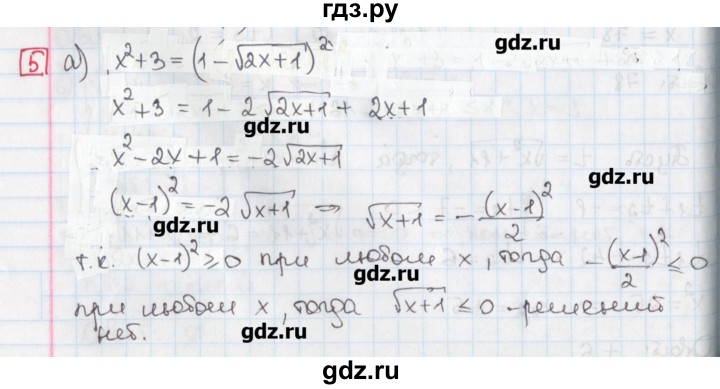 гдз.ру
5 а) x²+3 = (1-√(2x+1))²
x²+3 = 1-2√(2x+1) + 2x+1
gdz.ru
x²-2x+1 = -2√(2x+1)
gdz.ru
(x-1)² = -2√(x+1) ⇒ √(x+1) = -(x-1)²/2
gdz.ru
т.к. (x-1)² ≥ 0 при любом x, тогда -(x-1)²/2 ≤ 0
при любом x, тогда √(x+1) ≤ 0 - решений
нет.
gdz.ru
gdz.ru